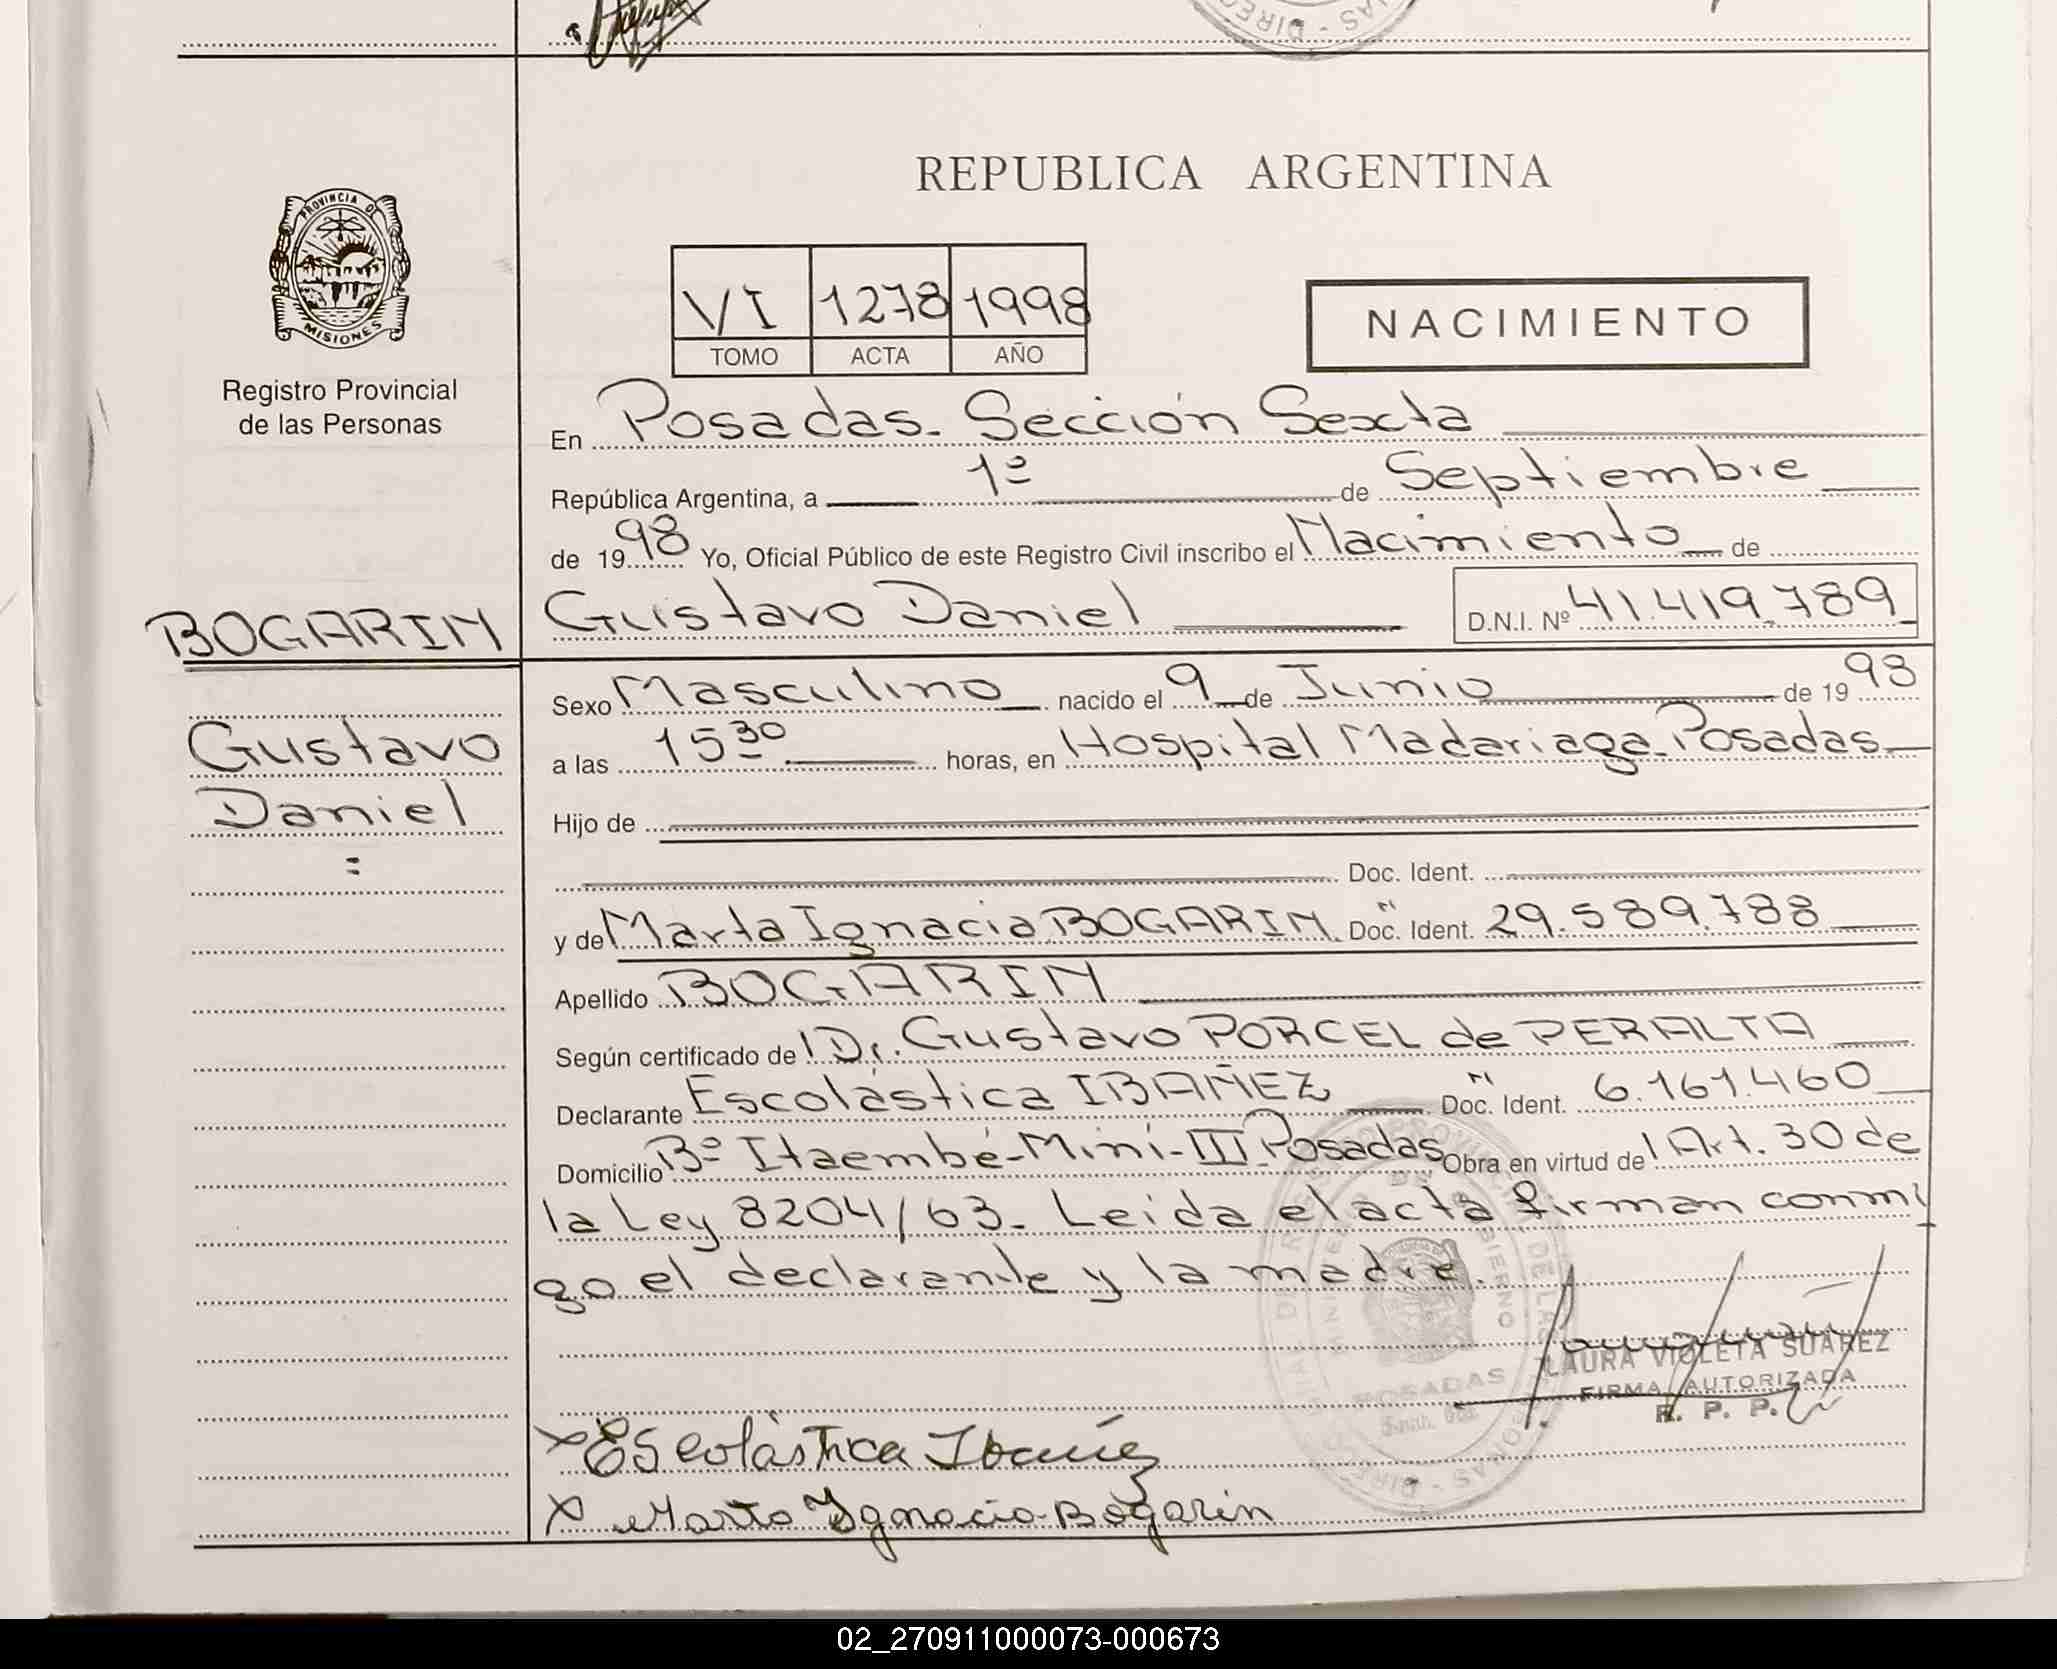 REPUBLICA ARGENTINA
PROVINCIA DE
MISIONES
Registro Provincial
de las Personas
VI 1278 1998
TOMO ACTA AÑO
NACIMIENTO
En Posadas. Sección Sexta
República Argentina, a 1º de Septiembre
de 1998 Yo, Oficial Público de este Registro Civil inscribo el Nacimiento de
BOGARIN
Gustavo Daniel D.N.I. Nº 41.419.789
Gustavo
Daniel
=
Sexo Masculino nacido el 9 de Junio de 1998
a las 15 30 horas, en Hospital Madariaga. Posadas
Hijo de
Doc. Ident.
y de Marta Ignacia BOGARIN. Doc. Ident. 29.589.788
Apellido BOGARIN
Según certificado del Dr. Gustavo PORCEL de PERALTA
Declarante Escolástica IBAÑEZ Doc. Ident. 6.161.460
Domicilio Bº Itaembé-Miní-III. Posadas Obra en virtud del Art. 30 de
la Ley 8204/63. Leida el acta firman conmi
go el declarante y la madre.
LAURA VIOLETA SUAREZ
FIRMA AUTORIZADA
R. P. P.
POSADAS
x Escolástica Ibañez
x Marta Ignacia Bogarin
02_270911000073-000673